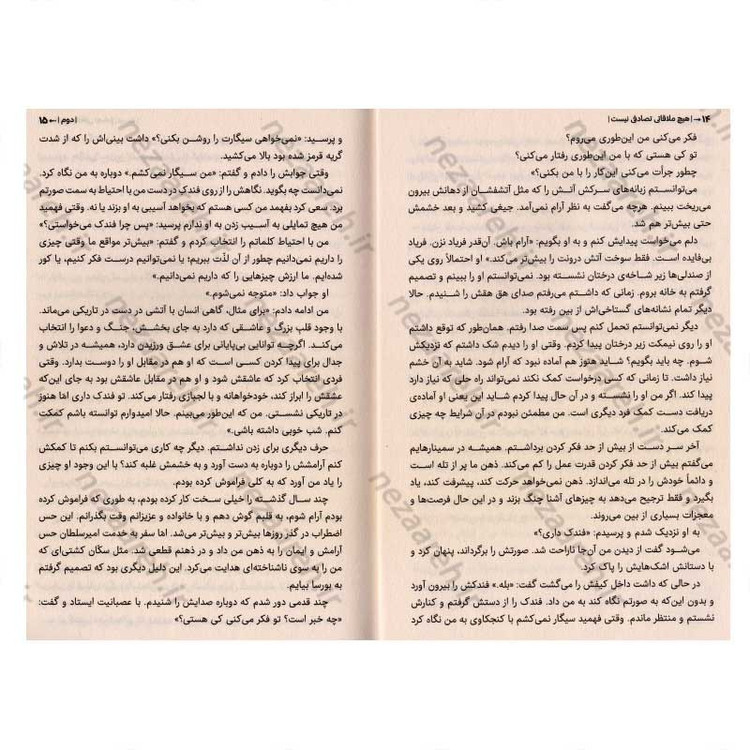 ۱۴ → | هیچ ملاقاتی تصادفی نیست |
فکر می‌کنی من این‌طوری می‌روم؟
تو کی هستی که با من این‌طوری رفتار می‌کنی؟
چطور جرأت می‌کنی این‌کار را با من بکنی؟»
می‌توانستم زبانه‌های سرکش آتش را که مثل آتشفشان از دهانش بیرون
می‌ریخت ببینم. هرچه می‌گفت به نظر آرام نمی‌آمد. جیغی کشید و بعد خشمش
حتی بیش‌تر هم شد.
دلم می‌خواست پیدایش کنم و به او بگویم: «آرام باش. آن‌قدر فریاد نزن. فریاد
بی‌فایده است. فقط سوخت آتش درونت را بیش‌تر می‌کند.» او احتمالاً روی یکی
از صندلی‌ها زیر شاخه‌ی درختان نشسته بود. نمی‌توانستم او را ببینم و تصمیم
گرفتم به خانه بروم. زمانی که داشتم می‌رفتم صدای هق هقش را شنیدم. حالا
دیگر تمام نشانه‌های گستاخی‌اش از بین رفته بود.
دیگر نمی‌توانستم تحمل کنم پس سمت صدا رفتم. همان‌طور که توقع داشتم
او را روی نیمکت زیر درختان پیدا کردم. وقتی او را دیدم شک داشتم که نزدیکش
شوم. چه باید بگویم؟ شاید هنوز هم آماده نبود که آرام شود. شاید به آن خشم
نیاز داشت. تا زمانی که کسی درخواست کمک نکند نمی‌تواند راه حلی که نیاز دارد
پیدا کند. اگر من او را نشسته و در آن حال پیدا کردم شاید این یعنی او آماده‌ی
دریافت دست کمک فرد دیگری است. من مطمئن نبودم در آن شرایط چه چیزی
کمک می‌کند.
آخر سر دست از بیش از حد فکر کردن برداشتم. همیشه در سمینارهایم
می‌گفتم بیش از حد فکر کردن قدرت عمل را کم می‌کند. ذهن ما پر از تله است
و دائماً خودش را در تله می‌اندازد. ذهن نمی‌خواهد حرکت کند، پیشرفت کند، یاد
بگیرد و فقط ترجیح می‌دهد به چیزهای آشنا چنگ بزند و در این حال فرصت‌ها و
معجزات بسیاری از بین می‌روند.
به او نزدیک شدم و پرسیدم: «فندک داری؟»
می‌شود گفت از دیدن من آن‌جا ناراحت شد. صورتش را برگرداند، پنهان کرد و
با دستانش اشک‌هایش را پاک کرد.
در حالی که داشت داخل کیفش را می‌گشت گفت: «بله.» فندکش را بیرون آورد
و بدون این‌که به صورتم نگاه کند به من داد. فندک را از دستش گرفتم و کنارش
نشستم و منتظر ماندم. وقتی فهمید سیگار نمی‌کشم با کنجکاوی به من نگاه کرد
| دوم | ← ۱۵
و پرسید: «نمی‌خواهی سیگارت را روشن بکنی؟» داشت بینی‌اش را که از شدت
گریه قرمز شده بود بالا می‌کشید.
وقتی جوابش را دادم و گفتم: «من سیگار نمی‌کشم.» دوباره به من نگاه کرد.
نمی‌دانست چه بگوید. نگاهش را از روی فندک در دست من با احتیاط به سمت صورتم
برد. سعی کرد بفهمد من کسی هستم که بخواهد آسیبی به او بزند یا نه. وقتی فهمید
من هیچ تمایلی به آسیب زدن به او ندارم پرسید: «پس چرا فندک می‌خواستی؟»
من با احتیاط کلماتم را انتخاب کردم و گفتم: «بیش‌تر مواقع ما وقتی چیزی
را داریم نمی‌دانیم چطور از آن لذّت ببریم؛ یا نمی‌توانیم درست فکر کنیم، یا کور
شده‌ایم. ما ارزش چیزهایی را که داریم نمی‌دانیم.»
او جواب داد: «متوجه نمی‌شوم.»
من ادامه دادم: «برای مثال، گاهی انسان با آتشی در دست در تاریکی می‌ماند.
با وجود قلب بزرگ و عاشقی که دارد به جای بخشش، جنگ و دعوا را انتخاب
می‌کند. اگرچه توانایی بی‌پایانی برای عشق ورزیدن دارد، همیشه در تلاش و
جدال برای پیدا کردن کسی است که او هم در مقابل او را دوست بدارد. وقتی
فردی انتخاب کرد که عاشقش شود و او هم در مقابل عاشقش بود به جای این‌که
عشقش را ابراز کند، خودخواهانه و با لجبازی رفتار می‌کند. تو فندک داری امّا هنوز
در تاریکی نشستی. من که این‌طور می‌بینم. حالا امیدوارم توانسته باشم کمکت
کنم. شب خوبی داشته باشی.»
حرف دیگری برای زدن نداشتم. دیگر چه کاری می‌توانستم بکنم تا کمکش
کنم آرامشش را دوباره به دست آورد و به خشمش غلبه کند؟ با این وجود او چیزی
را یاد من آورد که به کلی فراموش کرده بودم.
چند سال گذشته را خیلی سخت کار کرده بودم، به طوری که فراموش کرده
بودم آرام شوم، به قلبم گوش دهم و با خانواده و عزیزانم وقت بگذرانم. این حس
اضطراب در گذر روزها بیش‌تر و بیش‌تر می‌شد. امّا سفر به خدمت امیرسلطان حس
آرامش و ایمان را به ذهن من داد و در ذهنم قطعی شد. مثل سکان کشتی‌ای که
من را به سوی ناشناخته‌ای هدایت می‌کرد. این دلیل دیگری بود که تصمیم گرفتم
به بورسا بیایم.
چند قدمی دور شدم که دوباره صدایش را شنیدم. با عصبانیت ایستاد و گفت:
«چه خبر است؟ تو فکر می‌کنی کی هستی؟»
nezaareh.ir